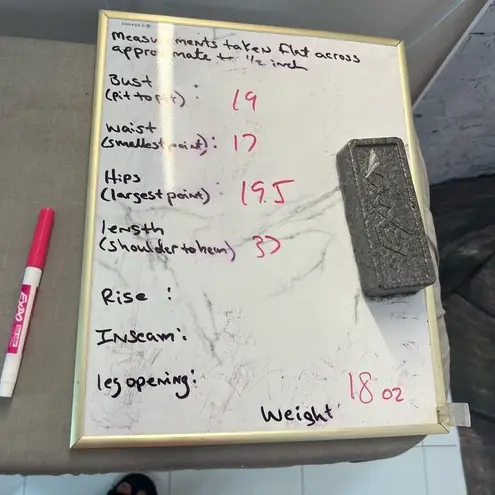 measurements taken flat across
approximate to 1/2 inch
Bust
(pit to pit) : 19
Waist
(smallest point) : 17
Hips
(largest point) : 19.5
length
(shoulder to hem) 37
Rise :
Inseam :
leg opening :
18 oz
Weight
EXPO
EXPO